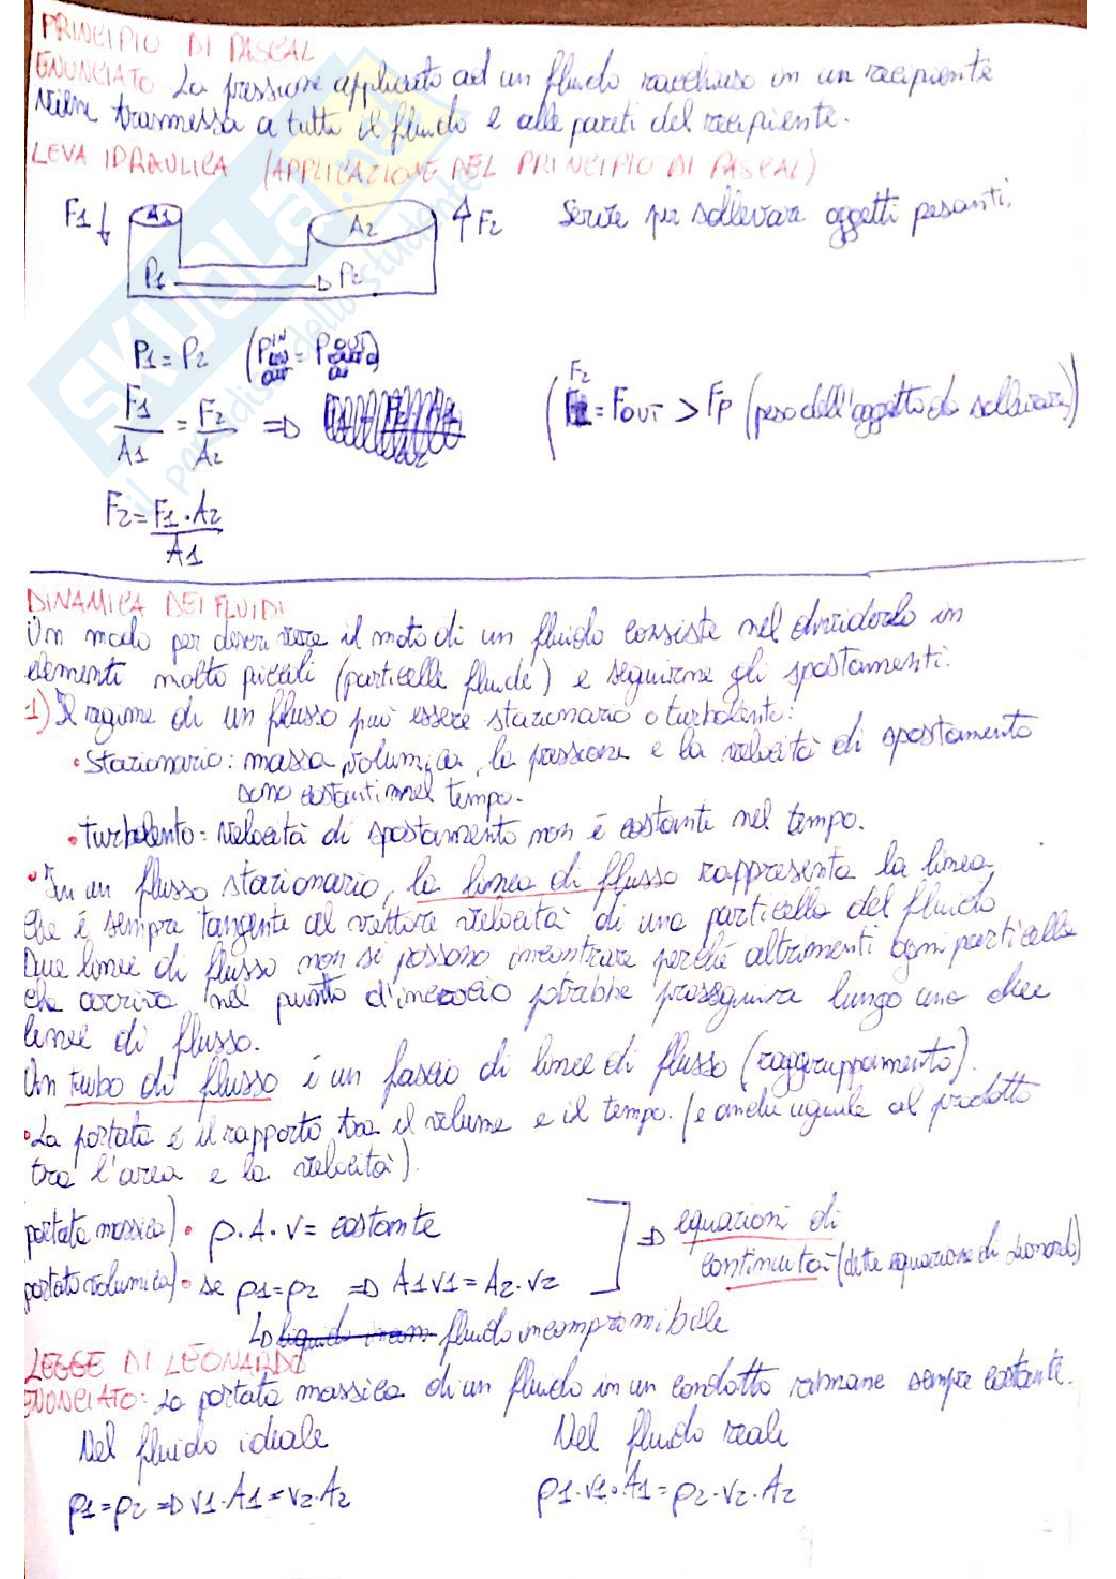 PRINCIPIO DI PASCAL
ENUNCIATO La pressione applicata ad un fluido racchiuso in un recipiente
viene trasmessa a tutto il fluido e alle pareti del recipiente.
LEVA IDRAULICA (APPLICAZIONE DEL PRINCIPIO DI PASCAL)
F1 A1 A2 F2 Serve per sollevare oggetti pesanti.
P1 P2
P1 = P2 (PIN = POUT)
F1/A1 = F2/A2 => (F2 = FOUT > FP (peso dell'oggetto da sollevare))
F2 = F1 · A2 / A1
DINAMICA DEI FLUIDI
Un modo per descrivere il moto di un fluido consiste nel dividerlo in
elementi molto piccoli (particelle fluide) e seguirne gli spostamenti.
1) Il regime di un flusso può essere stazionario o turbolento:
• Stazionario: massa volumica, la pressione e la velocità di spostamento
sono costanti nel tempo.
• turbolento: velocità di spostamento non è costante nel tempo.
• In un flusso stazionario, la linea di flusso rappresenta la linea
che è sempre tangente al vettore velocità di una particella del fluido
Due linee di flusso non si possono incontrare perché altrimenti ogni particella
che arriva nel punto d'incrocio potrebbe proseguire lungo una due
linee di flusso.
Un tubo di flusso è un fascio di linee di flusso (raggruppamento).
• La portata è il rapporto tra il volume e il tempo. (e anche uguale al prodotto
tra l'area e la velocità)
portata massica) • ρ · A · v = costante => equazioni di
portata volumica) • se ρ1 = ρ2 => A1 v1 = A2 · v2 continuità (dette equazione di Leonardo)
fluido incompromibile
LEGGE DI LEONARDO
ENUNCIATO: La portata massica di un fluido in un condotto rimane sempre costante.
Nel fluido ideale Nel fluido reale
ρ1 = ρ2 => v1 · A1 = v2 · A2 ρ1 · v1 · A1 = ρ2 · v2 · A2
SKUOLA.net
il paradiso dello studente